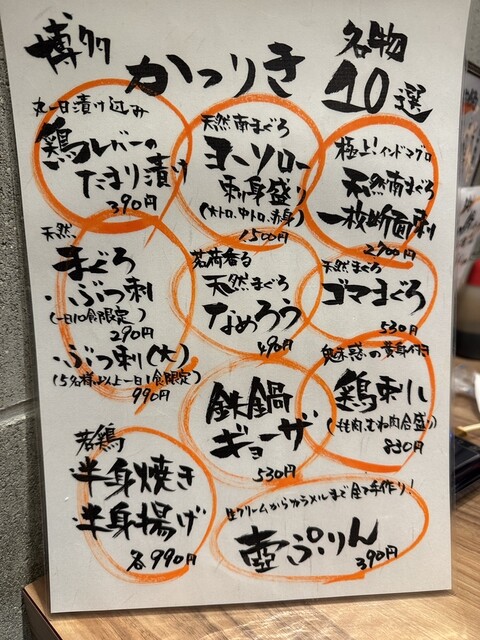 博多
かつりき
名物
10選
丸一日漬け込み
鶏レバーの
たまり漬け
390円
天然南まぐろ
ヨーソロー
刺身盛り
(大トロ、中トロ、赤身)
1500円
極上!インドマグロ
天然南まぐろ
一枚断面刺
2700円
天然
まぐろ
・ぶつ刺
(一日10食限定)
290円
・ぶつ刺(大)
(5名様以上一日1食限定)
990円
茗荷香る
天然まぐろ
なめろう
490円
天然まぐろ
ゴマまぐろ
530円
魅惑の黄身付
鶏刺し
(もも肉、むね肉合盛り)
830円
鉄鍋
ギョーザ
530円
若鶏
半身焼き
半身揚げ
各990円
生クリームからカラメルまで全て手作り!
壺ぷりん
390円